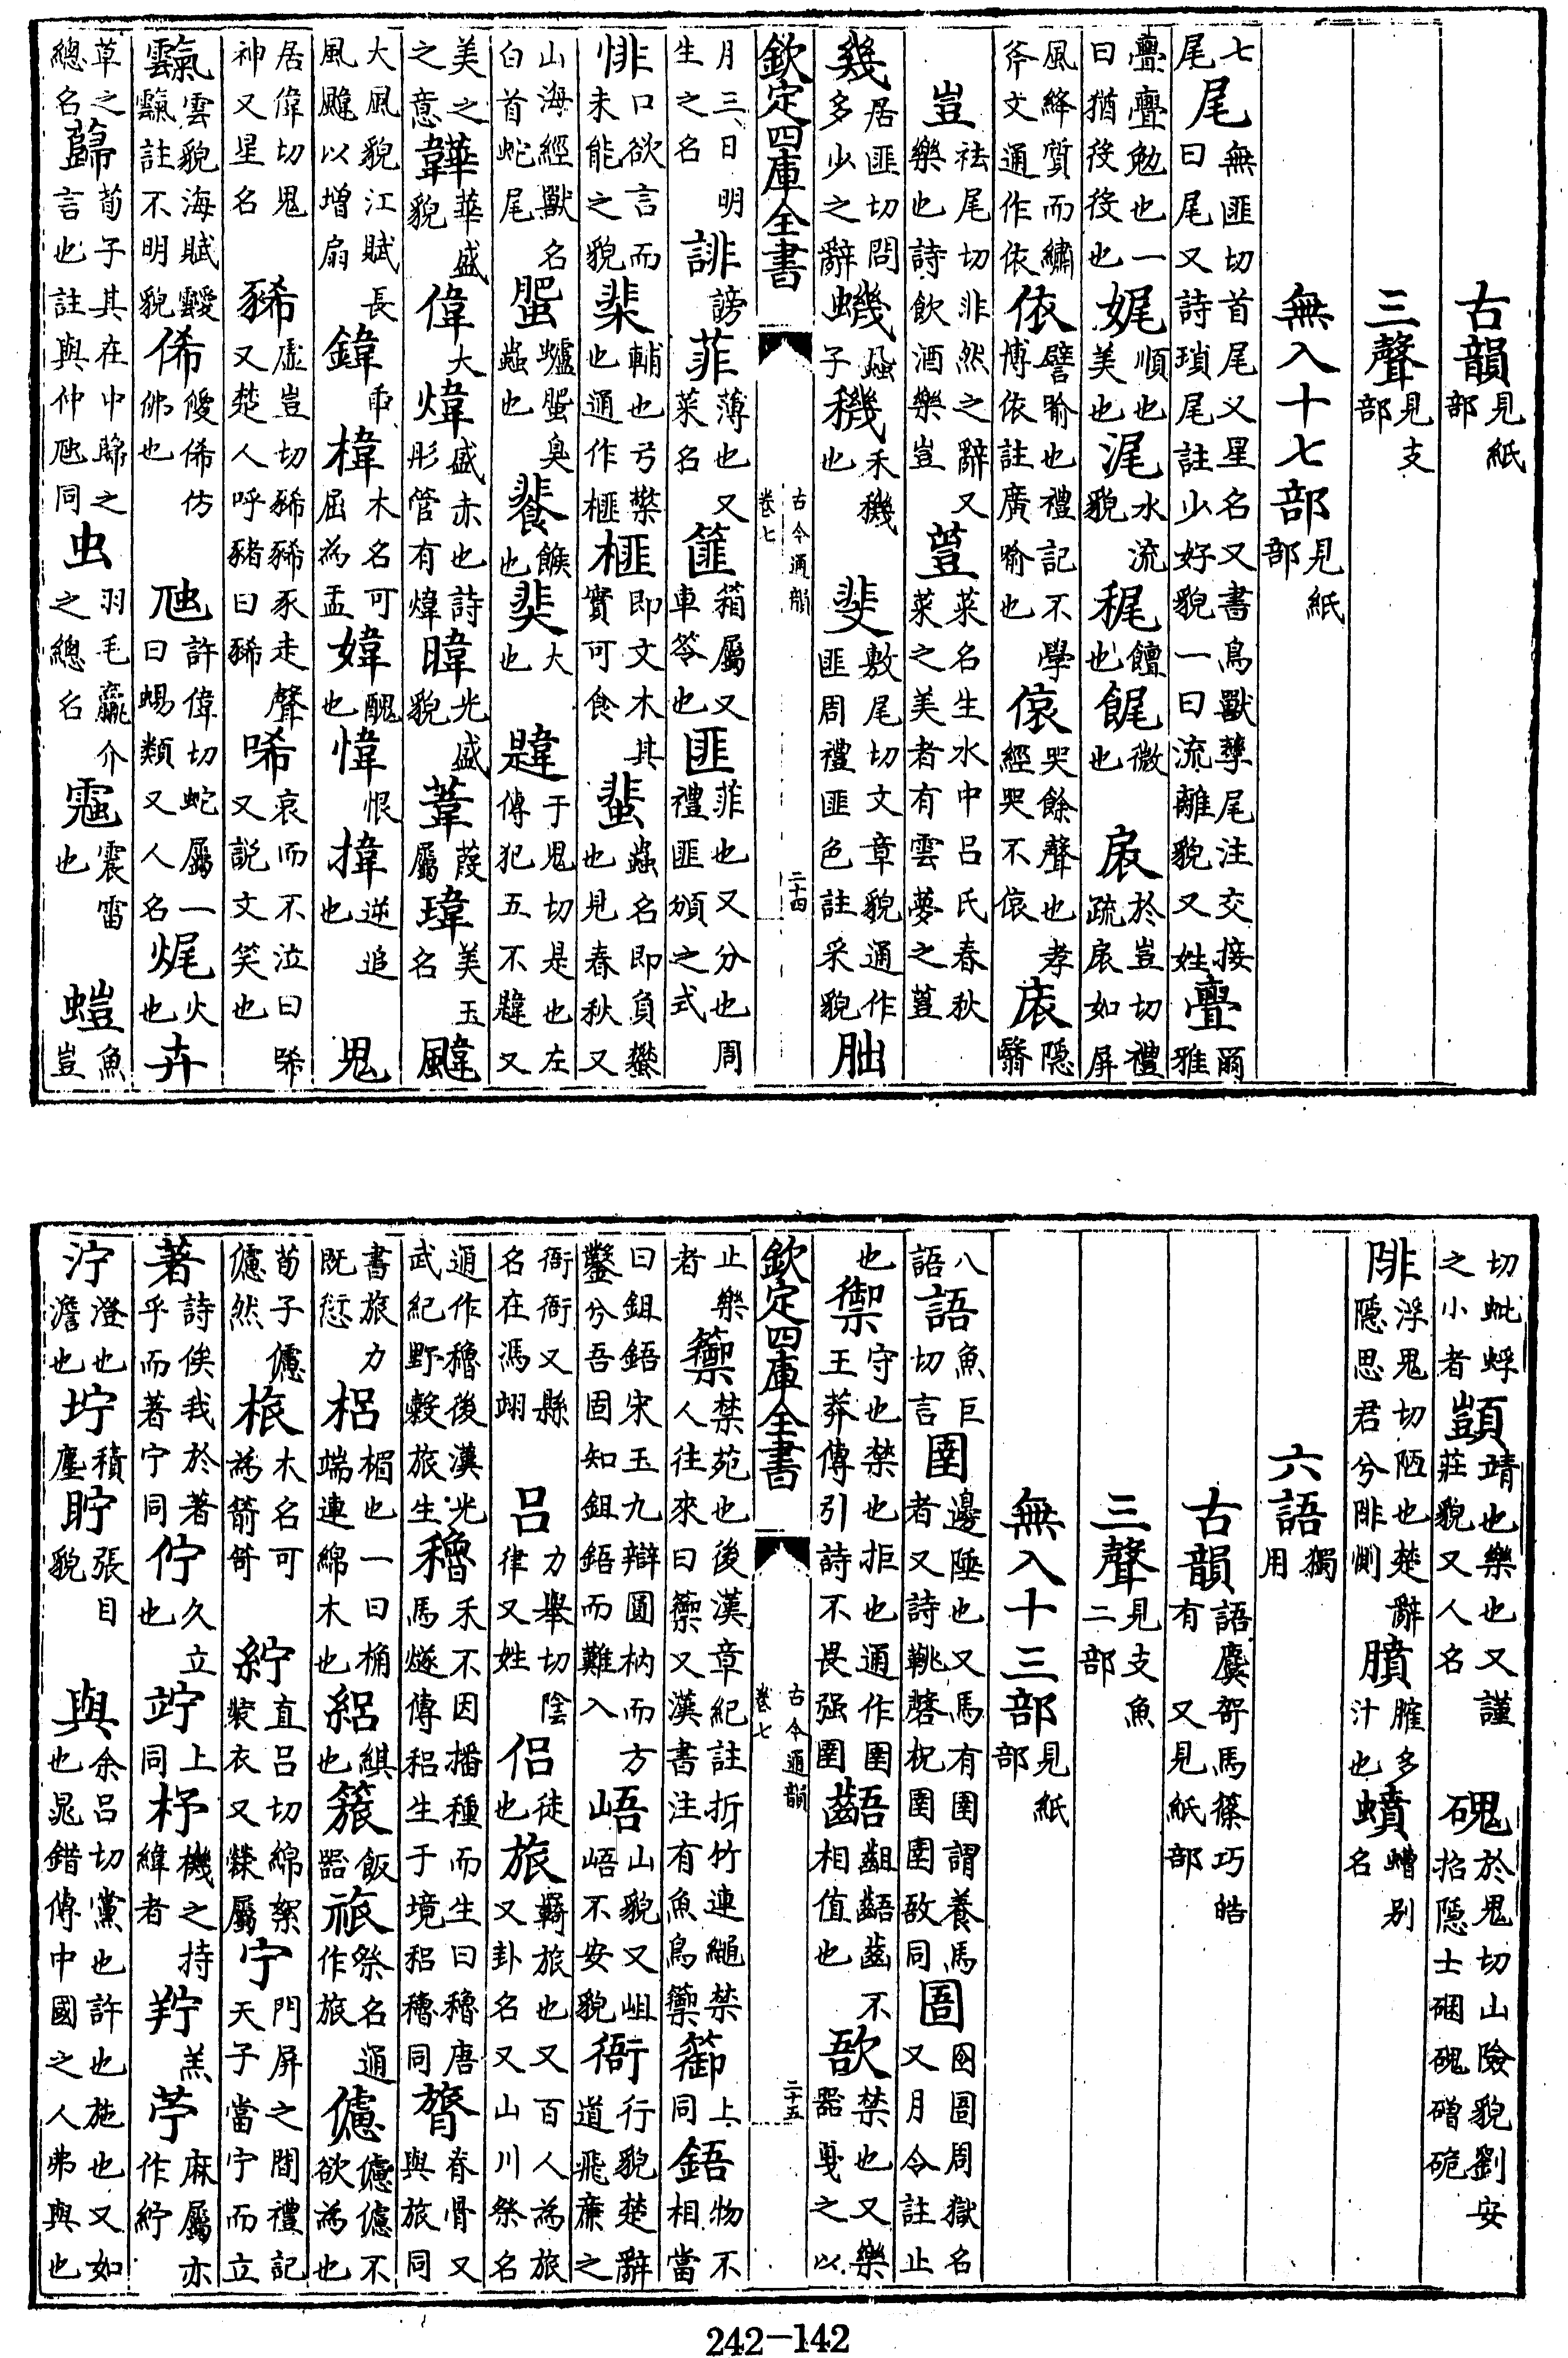 古韻見紙部
三聲見支部
無入十七部見紙部
七尾尾無匪切首尾又星名又書鳥獸孳尾注交接曰尾又詩瑣尾註少好貌一曰流離貌又姓亹爾雅
亹亹勉也一曰猶後後也娓順也美也浘水流貌梶饘也䬿微也扆於豈切禮疏扆如屏
風絳質而繡斧文通作依依譬喻也禮記不學博依註廣喻也偯哭餘聲也孝經哭不偯㕈隱翳
豈祛尾切非然之辭又樂也詩飲酒樂豈荳菜名生水中呂氏春秋菜之美者有雲夢之荳
幾居匪切問多少之辭蟣蝨子穖禾穖也斐敷尾切文章貌通作匪周禮匪色註采貌朏
欽定四庫全書 古今通韻卷七 二十四
月三日明生之名誹謗菲薄也又菜名篚箱屬又車笭也匪菲也又分也周禮匪頒之式
悱口欲言而未能之貌棐輔也弓檠也通作榧榧即文木其實可食蜚蟲名即負蠜也見春秋又
山海經獸名白首蛇尾蜰蠦蜰臭蟲也餥餱也奜大也韙于鬼切是也左傳犯五不韙又
美之之意韡華盛貌偉大煒盛赤也詩彤管有煒暐光盛貌葦葭屬瑋美玉名颹
大風貌江賦長風颹以增扇鍏臿椲木名可屈為盂媁醜也愇恨也揰逆追也鬼
居偉切鬼神又星名豨虛豈切豨豨豕走聲又楚人呼豬曰豨唏哀而不泣曰唏又說文笑也
霼雲貌海賦靉霼註不明貌俙僾俙仿佛也虺許偉切蛇屬一曰蜴類又人名㷄火也卉
草之總名蘬荀子其在中蘬之言也註與仲虺同虫羽毛鸁介之總名䨓震雷也螘魚豈
切蚍蜉之小者顗靖也樂也又謹莊貌又人名磈於鬼切山險貌劉安招隱士硱磈磳硊
陫浮鬼切陋也楚辭隱思君兮陫惻膹臛多汁也蟦螬别名
六語獨用
古韻語麌哿馬篠巧皓有又見紙部
三聲見支魚二部
無入十三部見紙部
八語語魚巨切言圉邊陲也又馬有圉謂養馬者又詩鞉磬柷圉圉敔同圄囹圄周獄名又月令註止
也禦守也禁也拒也通作圉王莽傳引詩不畏强圉齬齟齬齒不相值也敔禁也又樂器戛之以
欽定四庫全書 古今通韻卷七 二十五
止樂者籞禁苑也後漢章紀註折竹連繩禁人往來曰籞又漢書注有魚鳥籞篽上同鋙物不相當
曰鉏鋙宋玉九辯圓枘而方鑿兮吾固知鉏鋙而難入峿山貌又岨峿不安貌衙行貌楚辭道飛廉之
衙衙又縣名在馮翊吕力舉切陰律又姓侣徒也旅羇旅也又百人為旅又卦名又山川祭名
通作穭後漢光武紀野穀旅生穭禾不因播種而生曰穭唐馬燧傳稆生于境稆穭同膂脊骨又與旅同
書旅力既愆梠楣也一曰桷端連綿木也絽綨也簇飯器祣祭名通作旅儢儢儢不欲為也
荀子儢儢然梠木名可為箭笴紵直吕切綿絮裝衣又檾屬宁門屏之間禮記天子當宁而立
著詩俟我於著乎而著宁同佇久立也竚上同杼機之持緯者羜羔苧麻屬亦作紵
泞澄也澹也坾積塵貯張目貌與余吕切黨也許也施也又如也晁錯傳中國之人弗與也
242-142